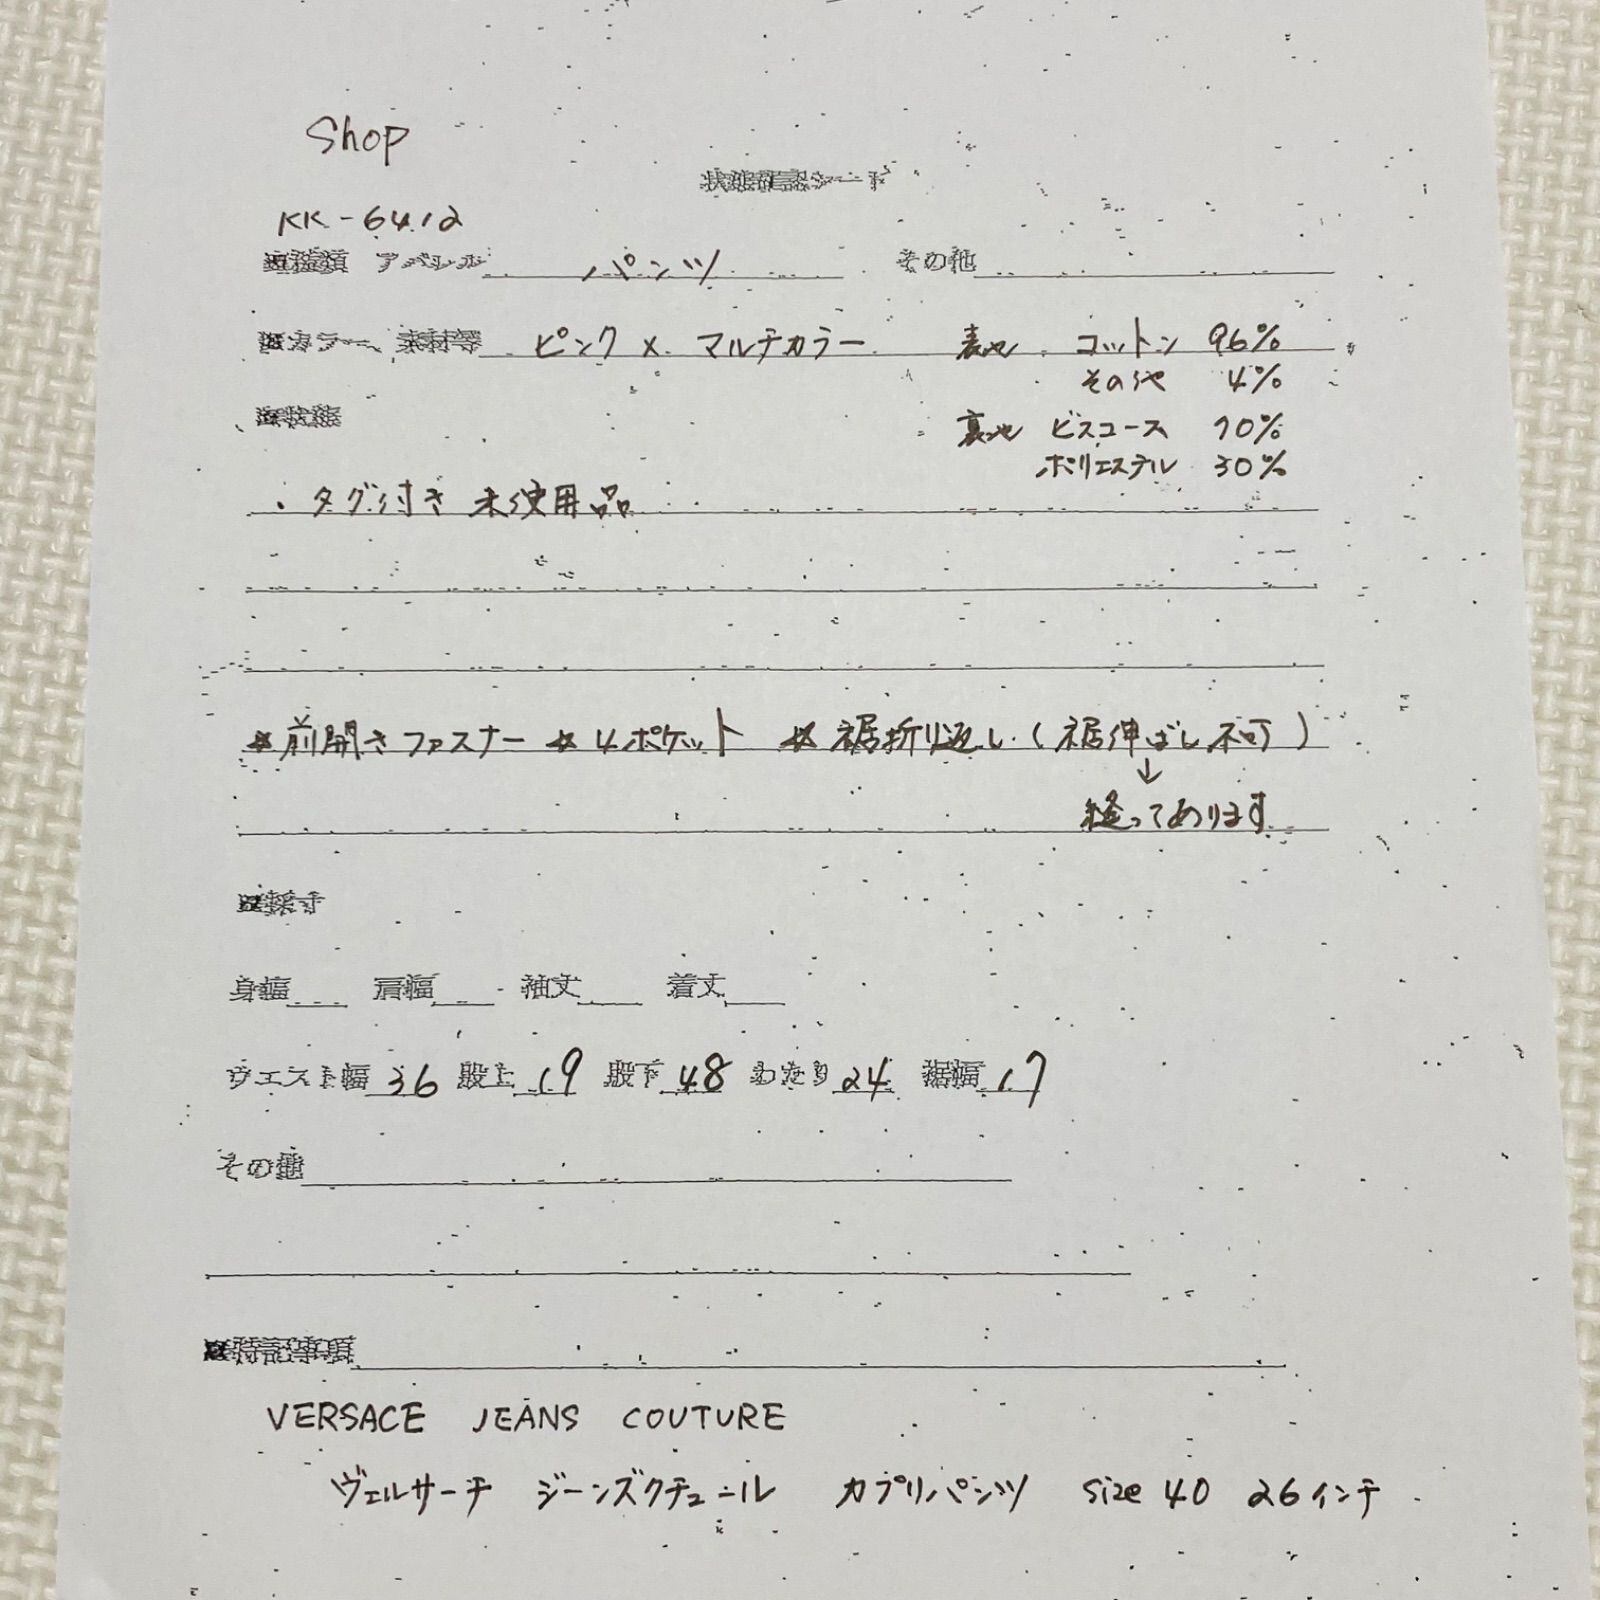 Shop
状態確認シート
KK-6412
■種類 アパレル パンツ その他
■カラー、素材等 ピンク×マルチカラー 表地 コットン 96%
その他 4%
■状態
裏地 ビスコース 70%
ポリエステル 30%
・タグ付き 未使用品
☆前開きファスナー ☆4ポケット ☆裾折り返し(裾伸ばし不可)
↓
縫ってあります
■採寸
身幅 肩幅 袖丈 着丈
ウエスト幅 36 股上 19 股下 48 わたり 24 裾幅 17
その他
■特記事項
VERSACE JEANS COUTURE
ヴェルサーチ ジーンズクチュール カプリパンツ size 40 26インチ